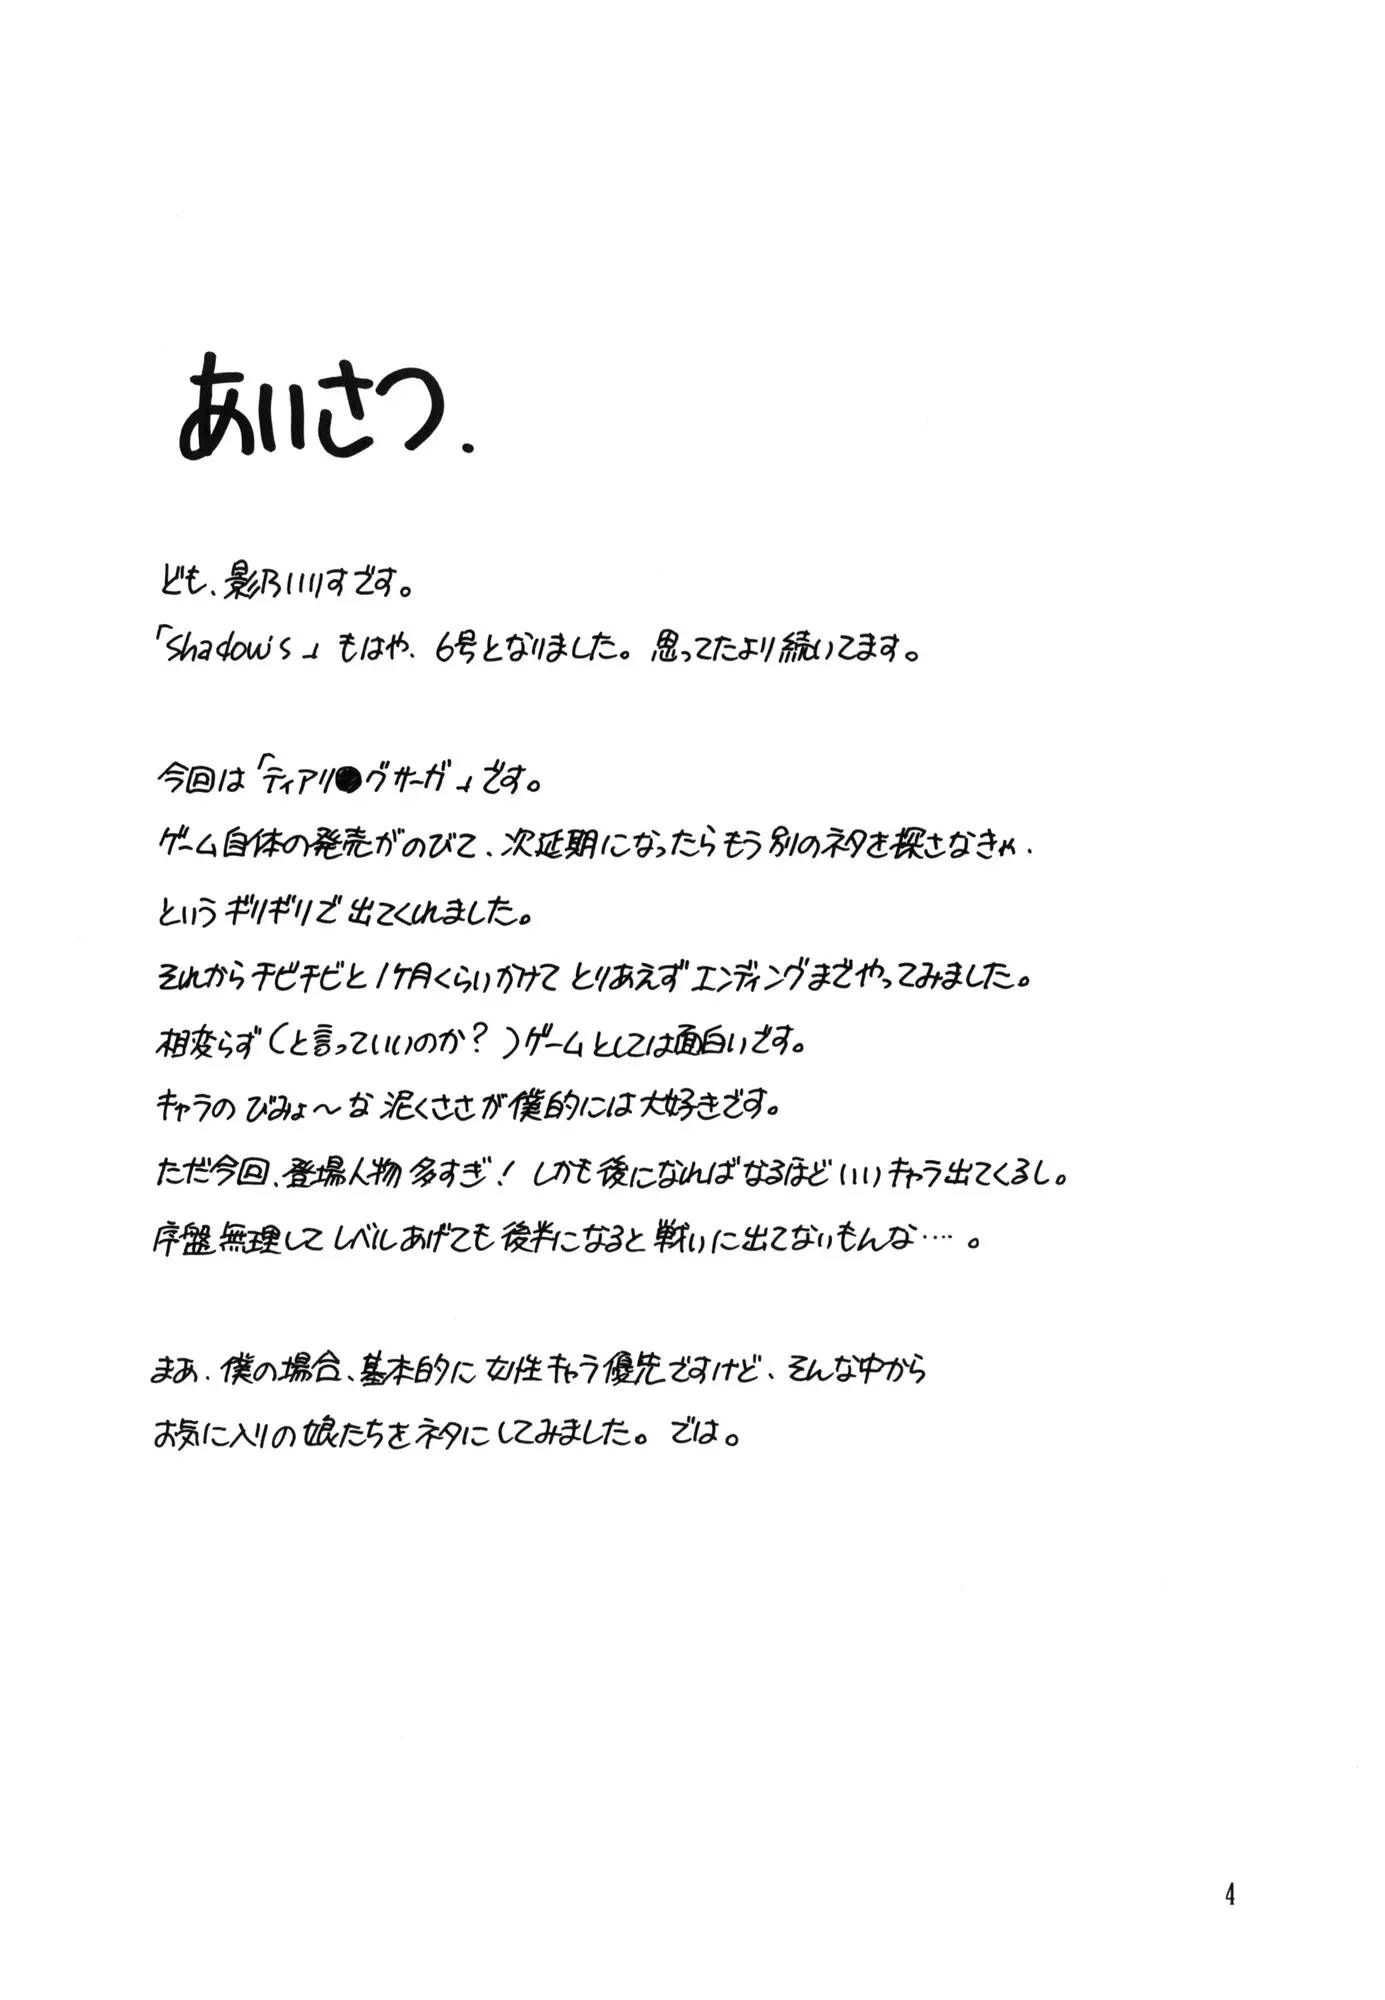 あいさつ.
ども、影乃いりすです。
「Shadow's」もはや、6号となりました。思ってたより続いてます。
今回は「ティアリ●グサーガ」です。
ゲーム自体の発売がのびて、次延期になったらもう別のネタを探さなきゃ、
というギリギリで出てくれました。
それからチビチビと1ヶ月くらいかけてとりあえずエンディングまでやってみました。
相変らず(と言っていいのか?)ゲームとしては面白いです。
キャラのびみょ〜な泥くささが僕的には大好きです。
ただ今回、登場人物多すぎ!しかも後になればなるほどいいキャラ出てくるし。
序盤無理してレベルあげても後半になると戦いに出てないもんな…。
まあ、僕の場合、基本的に女性キャラ優先ですけど、そんな中から
お気に入りの娘たちをネタにしてみました。では。
4